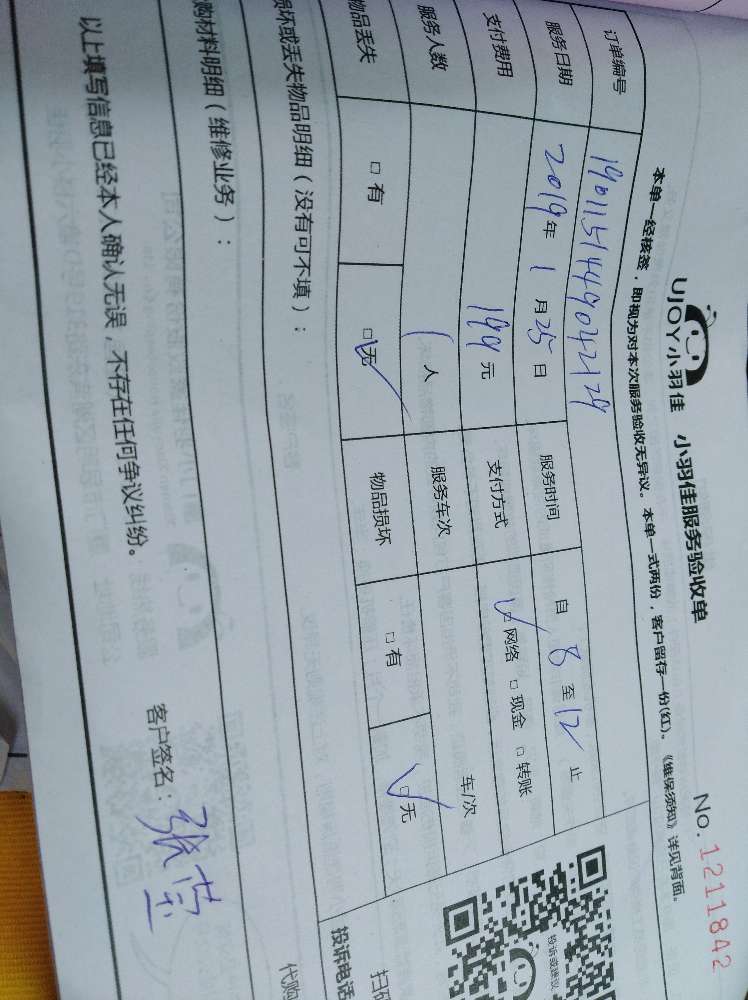 UJOY小羽佳 小羽佳服务验收单
No.1211842
本单一经核签，即视为对本次服务验收无异议。本单一式两份，客户留存一份(红)。《维保须知》详见背面。
订单编号 1901151449042129
服务日期 2019年1月25日 服务时间 自8至12止
支付费用 199元 支付方式 ☑网络 □现金 □转账
服务人数 1人 服务车次 车/次
物品丢失 □有 ☑无 物品损坏 □有 ☑无
损坏或丢失物品明细（没有可不填）：
购材料明细（维修业务）：
以上填写信息已经本人确认无误，不存在任何争议纠纷。
客户签名：张莹
投诉或建议
扫码
投诉电话
代购